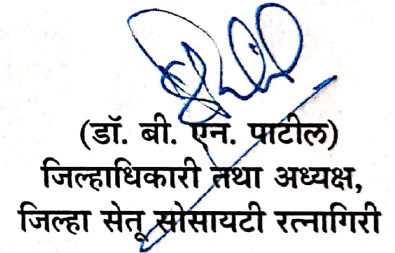 (डॉ. बी. एन. पाटील)
जिल्हाधिकारी तथा अध्यक्ष,
जिल्हा सेतू सोसायटी रत्नागिरी